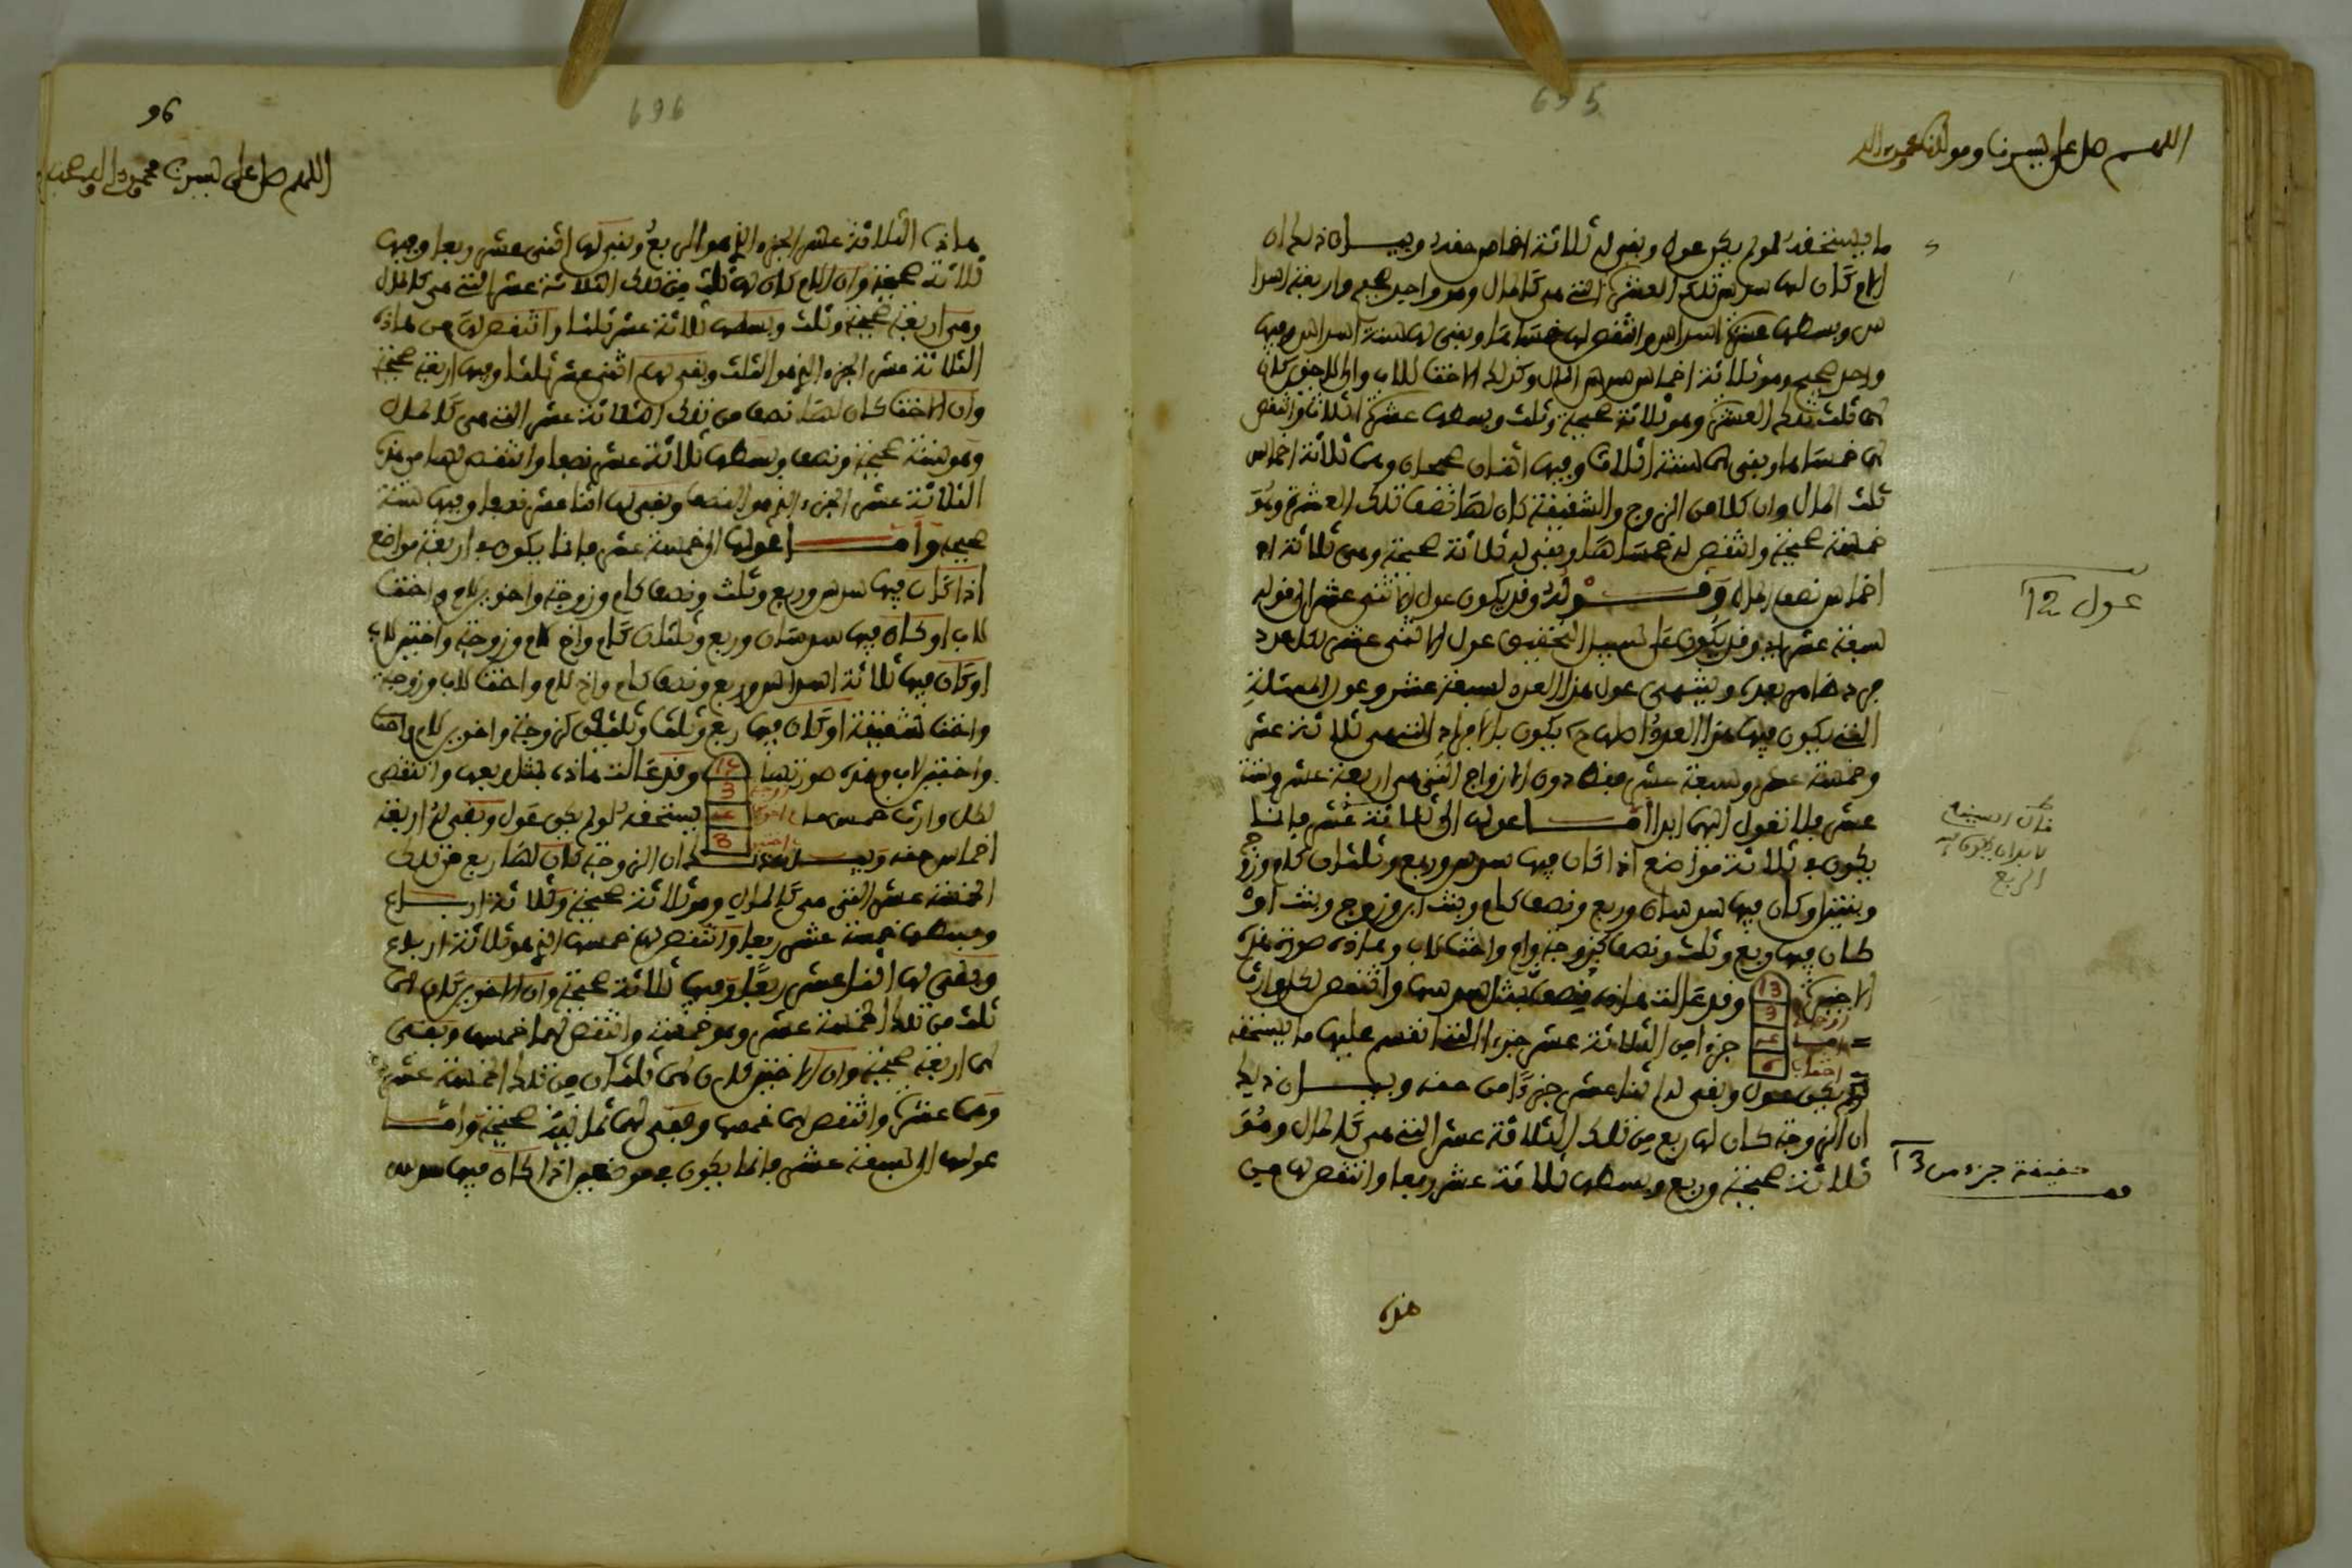 695
اللهم صل على سيدنا ومولانا محمد وآله
ما يستحقه لو لم يكن عول وبقي له ثلاثة اخماس حقه وبيــــان ذلك ان
الام كان لها سدس تلك العشرة التي هي كالمال وهو واحد صحيح واربعة اسدا
س وبسطها عشرة اسداس وانتقص لها خمساها وبقي لها ستة اسداس وفيها
واحد صحيح وهو ثلاثة اخماس سدس المال وكذلك الاخت للاب وان الاخوين كان
لهما ثلث تلك العشرة وهو ثلاثة صحيحة وثلث وبسطها عشرة اثلاث وانتقص
لهما خمساها وبقي لهما ستة اثلاث وفيها اثنان صحيحان وهما ثلاثة اخماس
ثلث المال وان كلا من الزوج والشقيقة كان لها نصف تلك العشرة وهو
خمسة صحيحة وانتقص له خمساها وبقي له ثلاثة صحيحة وهي ثلاثة
اخماس نصف المال وقـــوله وقد يكون عول الاثني عشر الى قوله
سبعة عشر وقد يكون على سبيل التحقيق عول الاثني عشر لكل عدد
فرد خاص بعده وينتهي عول هذا العدد لسبعة عشر وعول المسئلة
التي يكون فيها هذا العدد اصلها يكون بالافراد التي هي ثلاثة عشر
وخمسة عشر وسبعة عشر فقط دون الازواج التي هي اربعة عشر وستة
عشر فلا تعول اليها ابدا امـــا عولها الى ثلاثة عشر فانما
يكون في ثلاثة مواضع اذا كان فيها سدس وربع وثلثان كام وزوج
وبنتين او كان فيها سدسان وربع ونصف كام وبنت ابن وزوج وبنت او
كان فيها ربع وثلث ونصف كزوجة وام واخت لاب وهاذه صورة هذه
الاخيرة وقد عالت هاذه بنصف بمثل سدسها وانتقص لكل وارث
جزءا من الثلاثة عشر جزءا التي انقسم عليها ما يستحقه
لو لم يكن عول وبقي له اثنا عشر جزءا من حقه وبيـــان ذلك
ان الزوجة كان لها ربع من تلك الثلاثة عشر التي هي كالمال وهو
ثلاثة صحيحة وربع وبسطها ثلاثة عشر ربعا وانتقص لها من
هذه
13
زوجة 3
ام
اخت
عول 12
لابد ان يكون فيه
الربع
حقيقة جزء من 13
96
696
اللهم صل على سيدنا محمد وآله وصحبه
هاذه الثلاثة عشر الجزء الذي هو الربع وبقي لها اثني عشر ربعا وفيها
ثلاثة صحيحة وان الام كان لها ثلث من تلك الثلاثة عشر التي هي كالمال
وهي اربعة صحيحة وثلث وبسطها ثلاثة عشر ثلثا وانتقص لها من هاذه
الثلاثة عشر الجزء الذي هو الثلث وبقي لها اثني عشر ثلثا وفيها اربعة صحيحة
وان الاخت كان لها نصف من تلك الثلاثة عشر التي هي كالمال
وهو ستة صحيحة ونصف وبسطها ثلاثة عشر نصفا وانتقص لها من هذه
الثلاثة عشر الجزء الذي هو النصف وبقي لها اثنا عشر نصفا وفيها ستة
صحيحة وامـــا عولها الى خمسة عشر فانما يكون في اربعة مواضع
اذا كان فيها سدس وربع وثلث ونصف كام وزوجة واخوين لام واخت
للاب او كان فيها سدسان وربع وثلثان كام واخ لام وزوجة واختين للاب
او كان فيها ثلاثة اسداس وربع ونصف كام واخ للام واخت للاب وزوجة
واخت شقيقة او كان فيها ربع وثلث وثلثين كزوجة واخوين للام
واختين لاب وهذه صورتها وقد عالت هاذه بمثل ربعها وانتقص
لكل وارث خمس ما يستحقه لو لم يكن عول وبقي له اربعة
اخماس حقه وبيـــان ذلك ان الزوجة كان لها ربع من تلك
الخمسة عشر التي هي كالمال وهو ثلاثة صحيحة وثلاثة اربـــاع
وبسطها خمسة عشر ربعا وانتقص لها خمسها الذي هو ثلاثة ارباع
وبقي لها اثنا عشر ربعا وفيها ثلاثة صحيحة وان الاخوين كان لهما
ثلث من تلك الخمسة عشر وهو خمسة وانتقص لهما خمسها وبقي
لهما اربعة صحيحة وان الاختين كان لهما ثلثان من تلك الخمسة عشر
وهما عشرة وانتقص لهما خمسها وبقي لهما ثمانية صحيحة وامـــا
عولها الى سبعة عشر فانما يكون في موضعين اذا كان فيها سدس
15
زوجة 3
اخوين
اختين 8